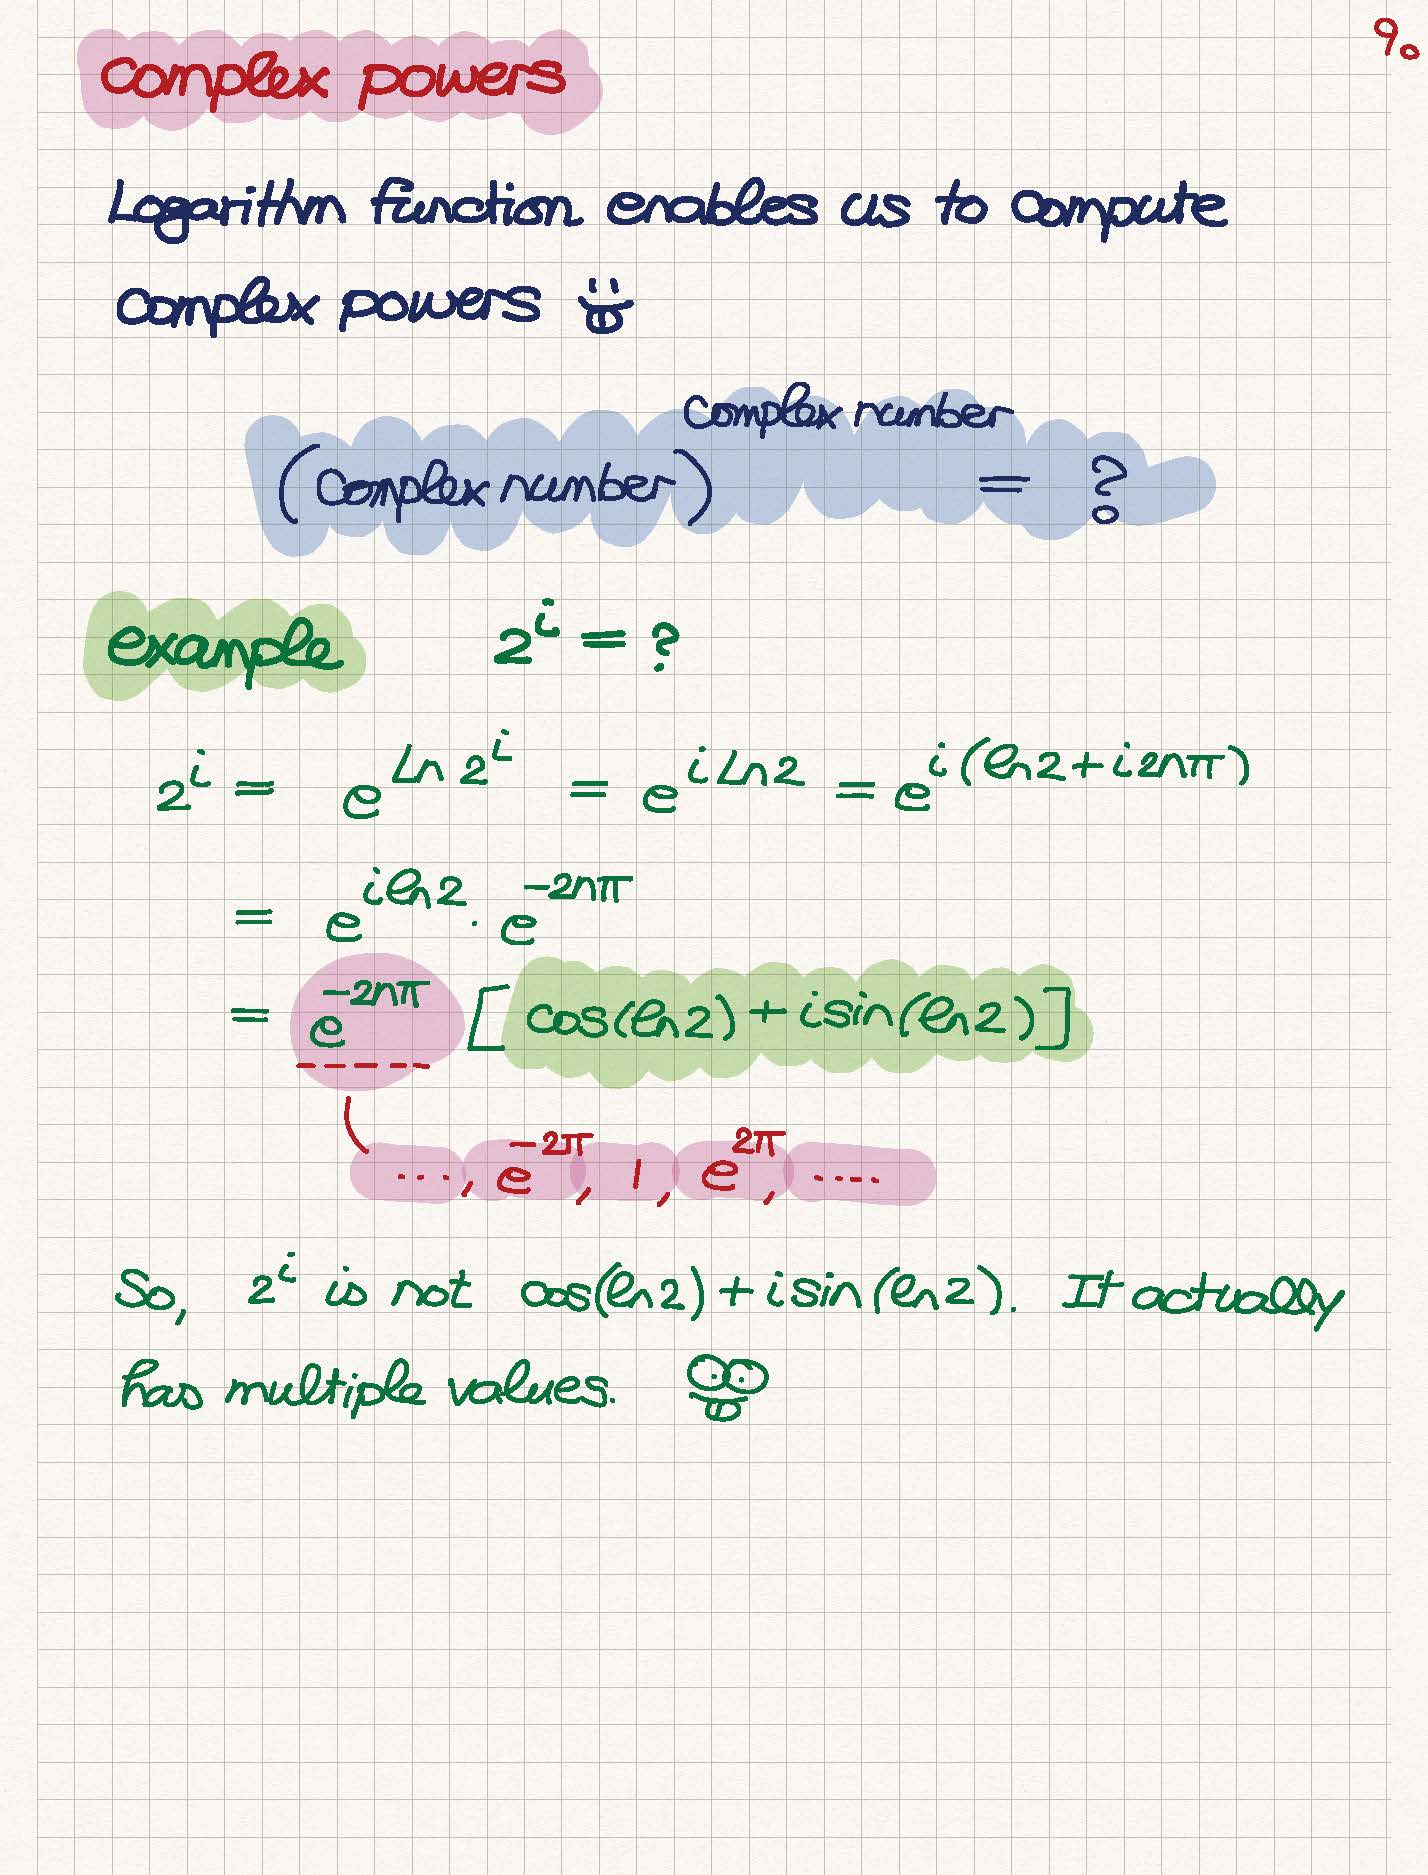 9.
Complex powers
Logarithm function enables us to compute
complex powers
(Complex number)^complex number = ?
example 2^i = ?
2^i = e^{Ln 2^i} = e^{i Ln 2} = e^{i(ln2+i2nπ)}
= e^{iln2} . e^{-2nπ}
= e^{-2nπ} [cos(ln2)+isin(ln2)]
..., e^{-2π}, 1, e^{2π}, ....
So, 2^i is not cos(ln2)+isin(ln2). It actually
has multiple values.